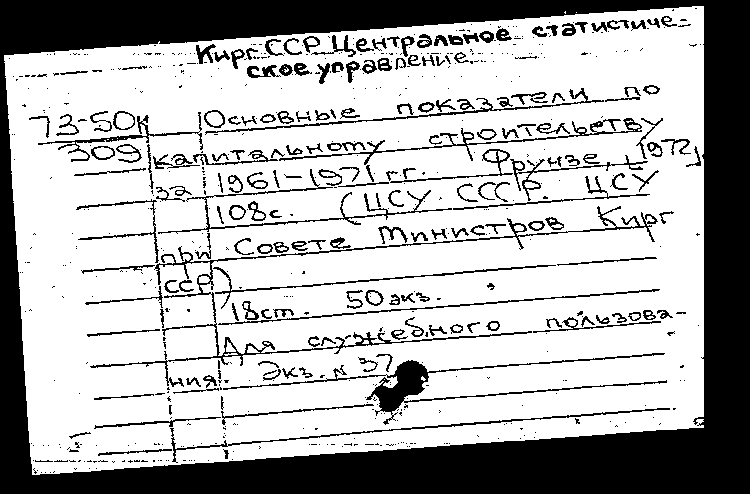 Кирг ССР Центральное статистиче-
ское управление.
73-50к Основные показатели по
309 капитальному строительству
за 1961-1971 гг. Фрунзе, [1972].
108с. (ЦСУ СССР. ЦСУ
при Совете Министров Кирг
ССР).
18см. 50 экз.
Для служебного пользова-
ния. Экз. № 37